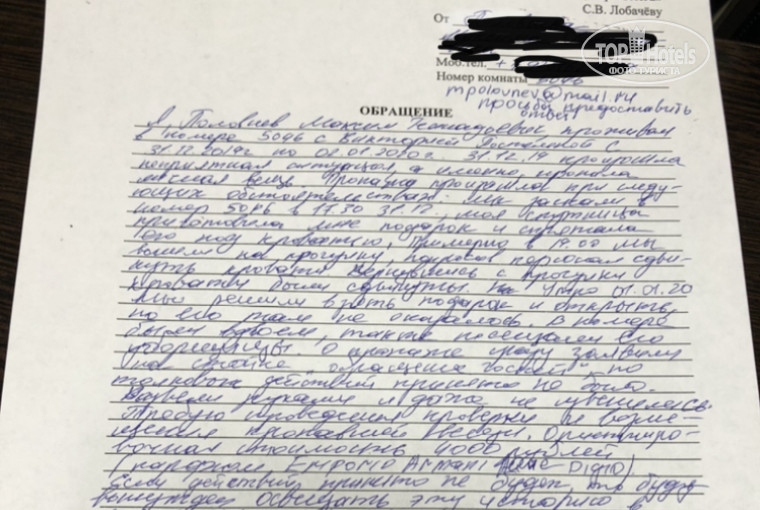 С.В. Лобачёву
От
TOP Hotels
ФОТО ТУРИСТА
Моб.тел. +
Номер комнаты 5096
mpolovnev@mail.ru
просьба предоставить
ответ
ОБРАЩЕНИЕ
Я, Половнев Максим Геннадьевич, проживал
в номере 5096 с Викторией с
31.12.2019г по 02.01.2020г. 31.12.19 произошла
неприятная ситуация, а именно, пропала
личная вещь. Пропажа произошла при следу-
ющих обстоятельствах: мы заехали в
номер 5096 в 17.30 31.12., моя спутница
приготовила мне подарок и спрятала
его под кроватью, примерно в 19.00 мы
вышли на прогулку, попросив персонал сдви-
нуть кровати. Вернувшись с прогулки
кровати были сдвинуты. На утро 01.01.20
мы решили взять подарок и открыть,
но его там не оказалось. В номере
были вдвоем, также посещали его
уборщицы. О пропаже сразу заявили
на стойке "обращение гостей", но
толковых действий принято не было.
Развели руками и даже не извинились.
Требую проведения проверки и возме-
щения пропавшей вещи. Ориентиро-
вочная стоимость 4000 рублей
(парфюм Emporio Armani Dioro).
Если действий принято не будет, то буду
вынужден освещать эту историю в